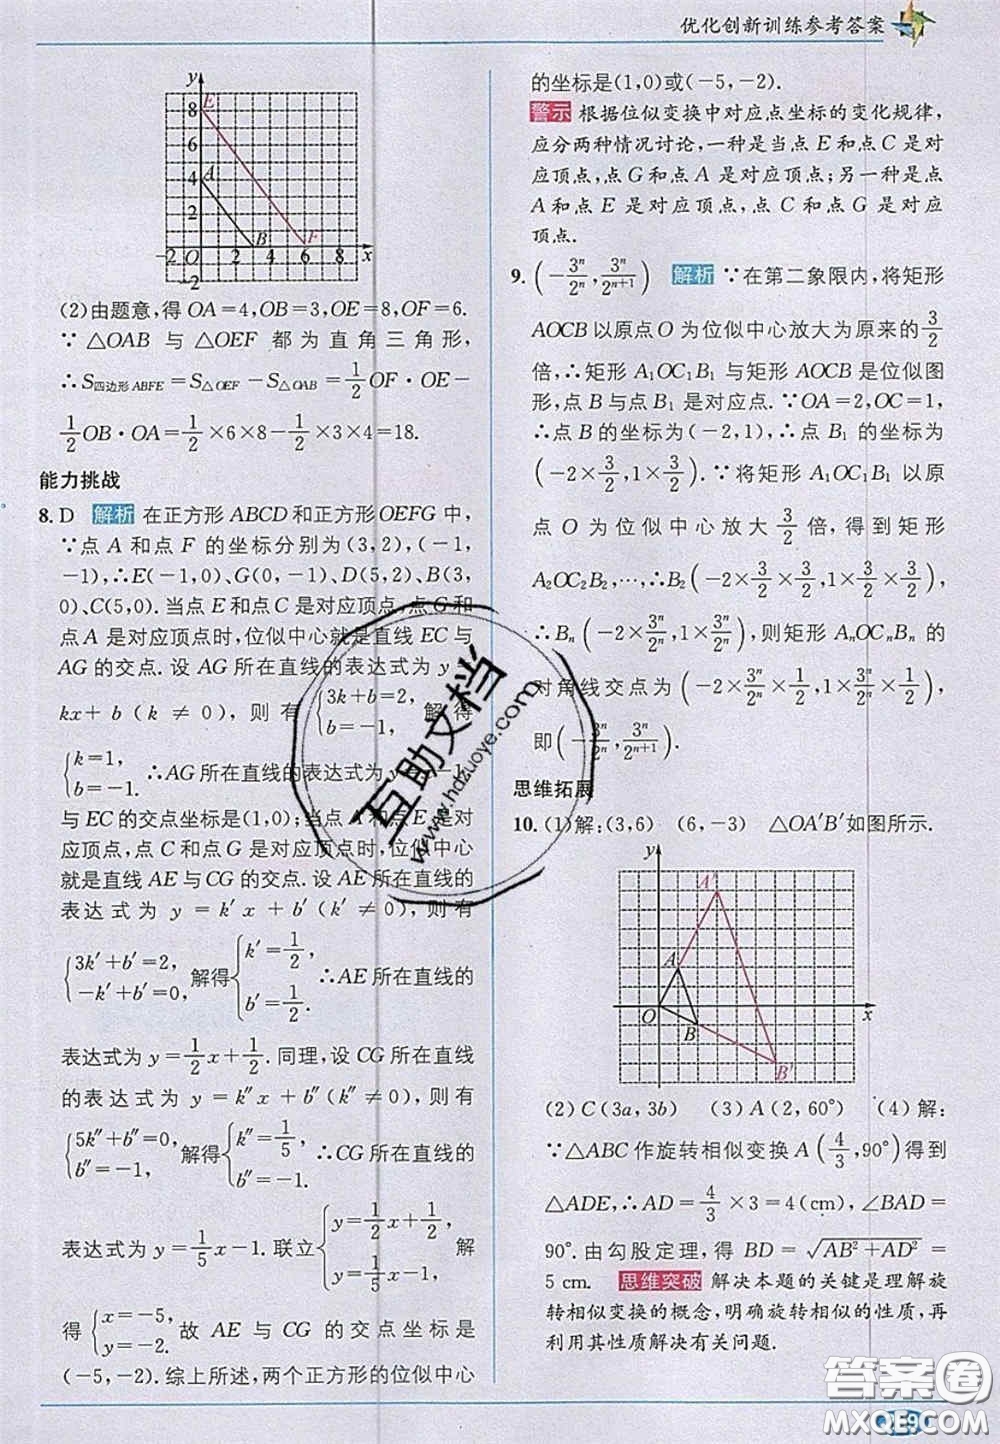 优化创新训练参考答案
y
8 E
6
4 A
2
B F
-2 O 2 4 6 8 x
-2
(2)由题意,得OA=4,OB=3,OE=8,OF=6.
∵△OAB 与 △OEF 都为直角三角形,
∴S四边形ABFE=S△OEF-S△OAB=1/2 OF·OE-
1/2 OB·OA=1/2×6×8-1/2×3×4=18.
能力挑战
8. D 解析 在正方形ABCD和正方形OEFG中,
∵点A和点F的坐标分别为(3,2),(-1,
-1),∴E(-1,0)、G(0,-1)、D(5,2)、B(3,
0)、C(5,0).当点E和点C是对应顶点,点G和
点A是对应顶点时,位似中心就是直线EC与
AG的交点.设AG所在直线的表达式为y=
kx+b(k≠0),则有{3k+b=2, b=-1, 解得
{k=1, b=-1. ∴AG所在直线的表达式为y=
与EC的交点坐标是(1,0);当点A和点E是对应
顶点,点C和点G是对应顶点时,位似中心
就是直线AE与CG的交点.设AE所在直线的
表达式为y=k′x+b′(k′≠0),则有
{3k′+b′=2, -k′+b′=0, 解得{k′=1/2, b′=1/2. ∴AE所在直线的
表达式为y=1/2x+1/2.同理,设CG所在直线
的表达式为y=k″x+b″(k″≠0),则有
{5k″+b″=0, b″=-1, 解得{k″=1/5, b″=-1. ∴CG所在直线的
表达式为y=1/5x-1.联立{y=1/2x+1/2, y=1/5x-1. 解
得{x=-5, y=-2. 故AE与CG的交点坐标是
(-5,-2).综上所述,两个正方形的位似中心
的坐标是(1,0)或(-5,-2).
警示 根据位似变换中对应点坐标的变化规律,
应分两种情况讨论,一种是当点E和点C是对
应顶点,点G和点A是对应顶点;另一种是点
A和点E是对应顶点,点C和点G是对应
顶点.
9. (-3ⁿ/2ⁿ, 3ⁿ/2ⁿ⁺¹) 解析 ∵在第二象限内,将矩形
AOCB以原点O为位似中心放大为原来的3/2
倍,∴矩形A₁OC₁B₁与矩形AOCB是位似图
形,点B与点B₁是对应点.∵OA=2,OC=1,
∴点B的坐标为(-2,1),∴点B₁的坐标为
(-2×3/2, 1×3/2).∵将矩形A₁OC₁B₁以原
点O为位似中心放大3/2倍,得到矩形
A₂OC₂B₂,…,∴B₂(-2×3/2×3/2, 1×3/2×3/2),
∴Bₙ(-2×3ⁿ/2ⁿ, 1×3ⁿ/2ⁿ),则矩形AₙOCₙBₙ的
对角线交点为(-2×3ⁿ/2ⁿ×1/2, 1×3ⁿ/2ⁿ×1/2),
即(-3ⁿ/2ⁿ, 3ⁿ/2ⁿ⁺¹).
思维拓展
10. (1)解:(3,6) (6,-3) △OA′B′如图所示.
y
A′
A
O B x
B′
(2)C(3a,3b) (3)A(2,60°) (4)解:
∵△ABC作旋转相似变换A(4/3,90°)得到
△ADE,∴AD=4/3×3=4(cm),∠BAD=
90°.由勾股定理,得BD=√(AB²+AD²)=
5 cm. 思维突破 解决本题的关键是理解旋
转相似变换的概念,明确旋转相似的性质,再
利用其性质解决有关问题.
互助文档
www.hdzuoye.com
答案圈
MXQE.COM